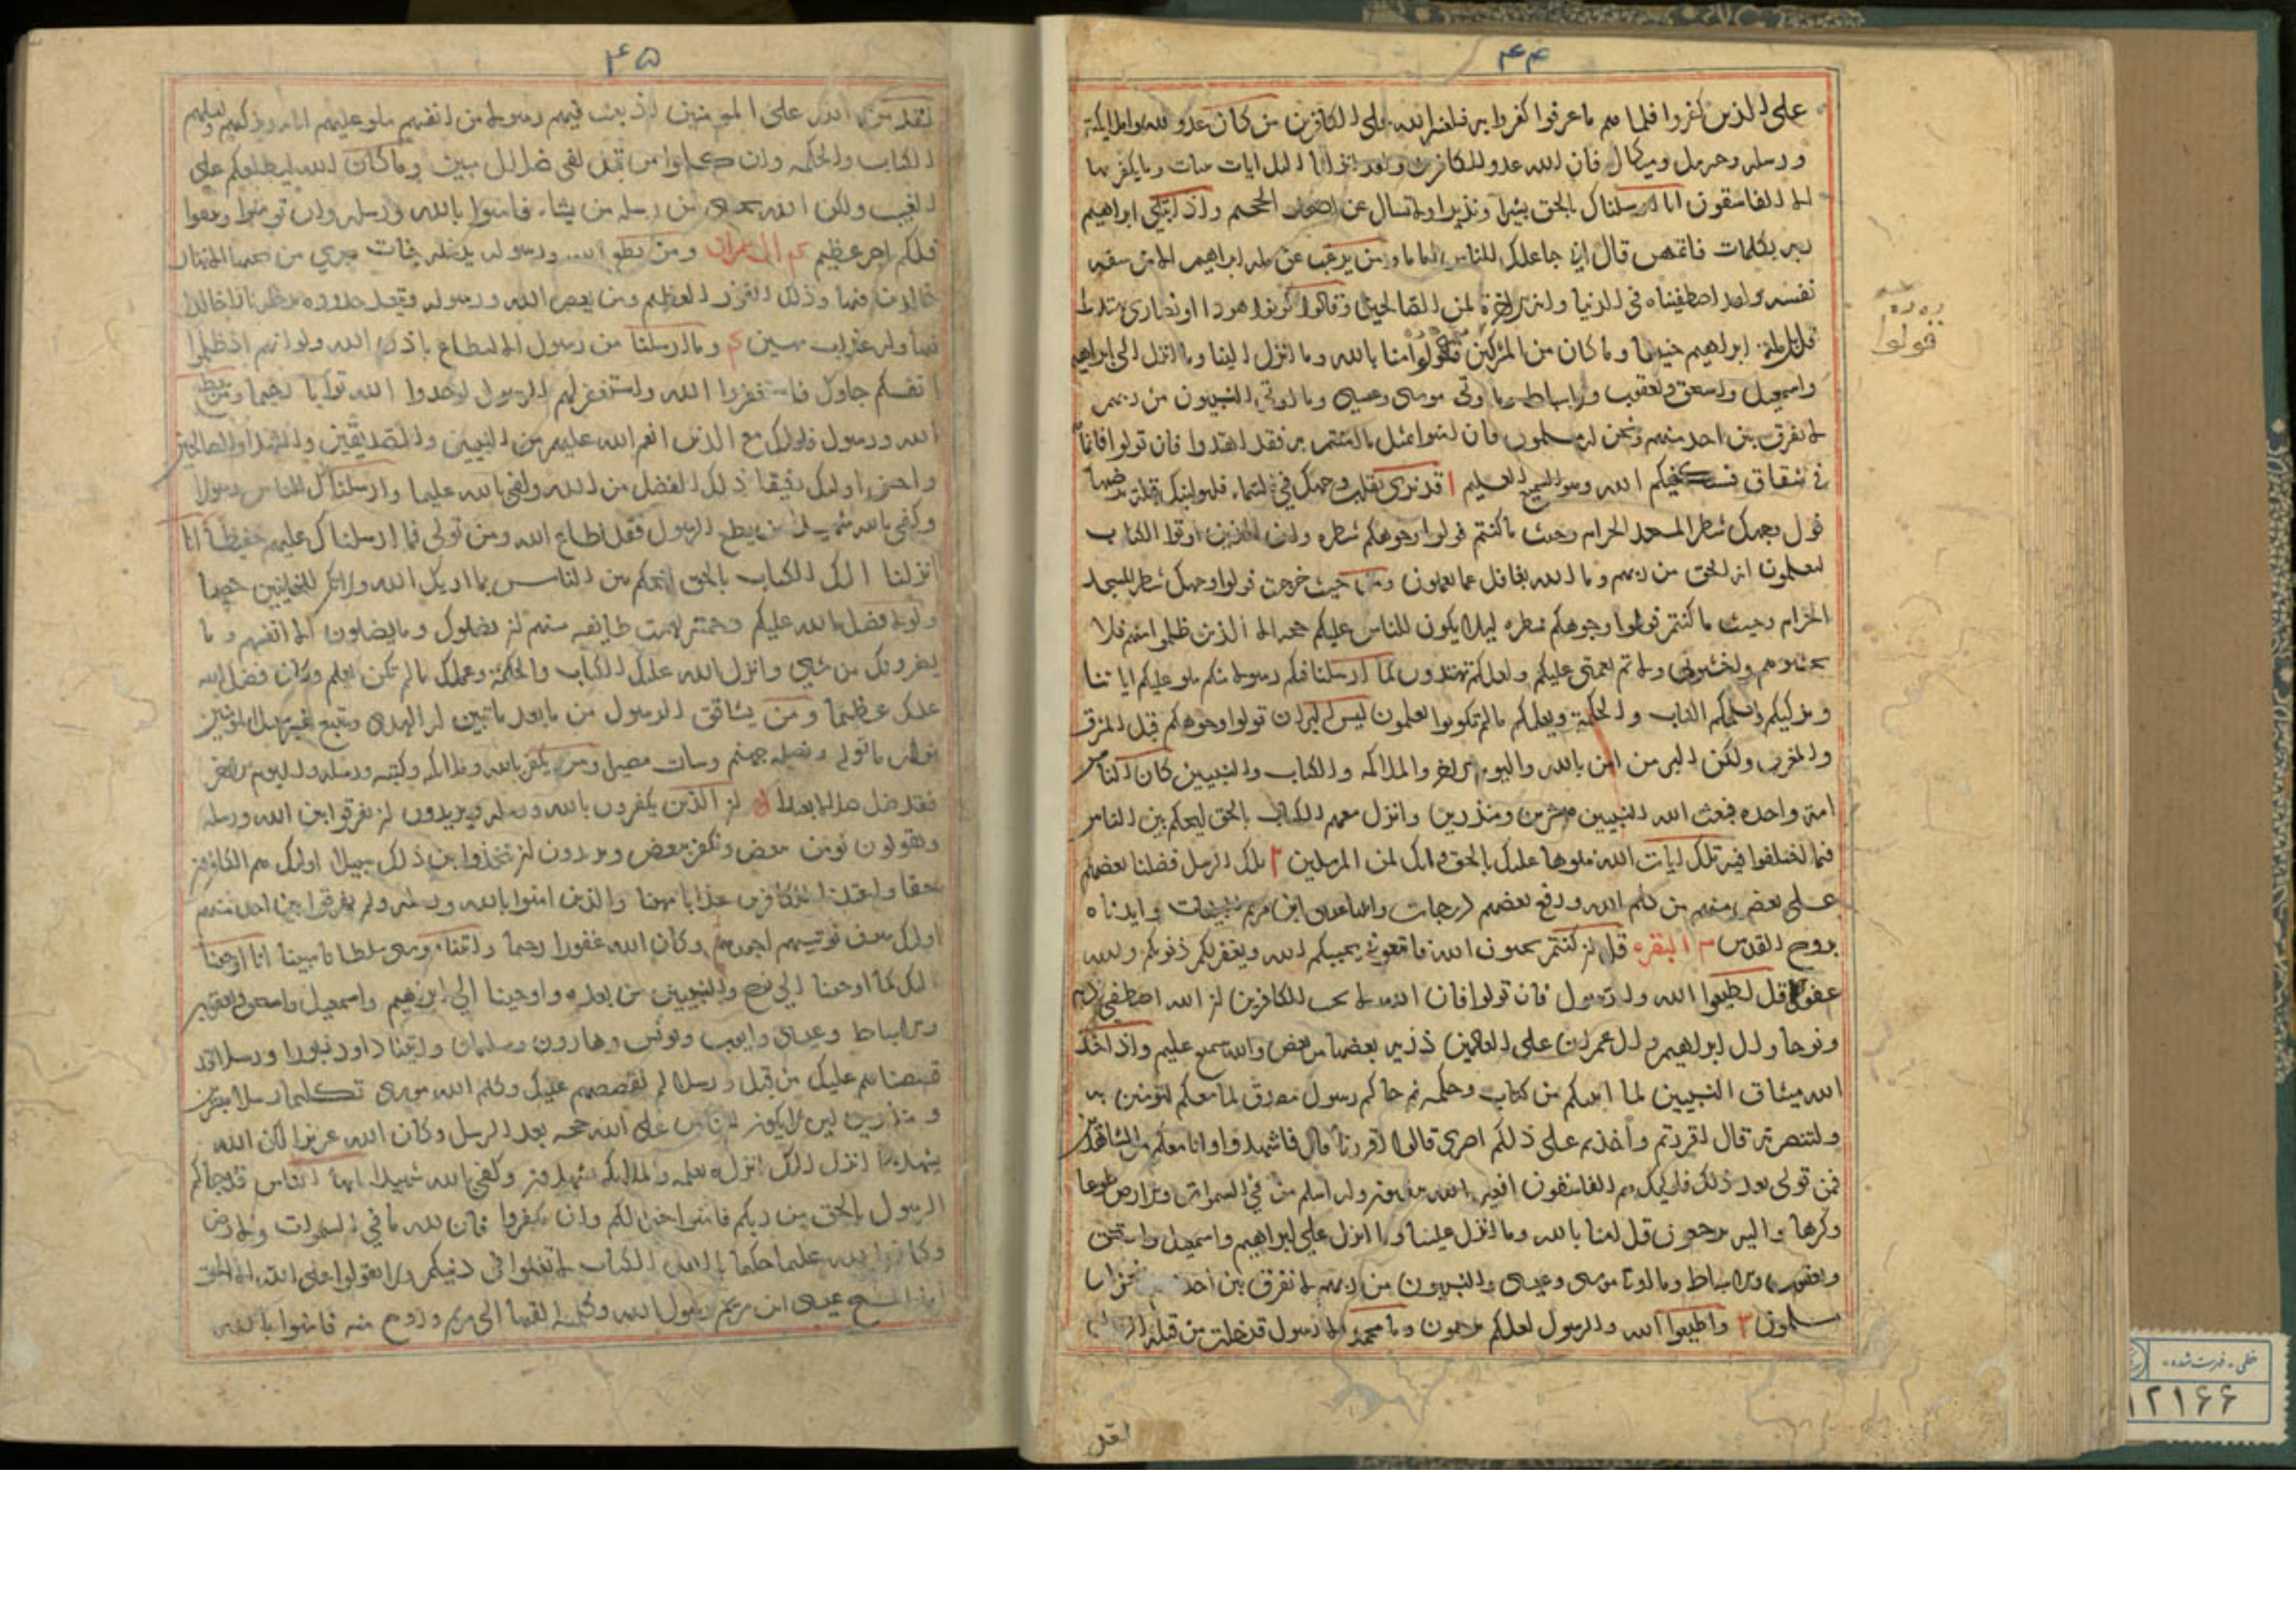 ۴۴
على الذين كفروا فلما جاءهم ما عرفوا كفروا به فلعنة الله على الكافرين من كان عدوا لله وملائكته
ورسله وجبريل وميكال فان الله عدو للكافرين ولقد انزلنا اليك ايات بينات وما يكفر بها
الا الفاسقون انا ارسلناك بالحق بشيرا ونذيرا ولا تسال عن اصحاب الجحيم واذ ابتلى ابراهيم
ربه بكلمات فاتمهن قال اني جاعلك للناس اماما ومن يرغب عن ملة ابراهيم الا من سفه
نفسه ولقد اصطفيناه في الدنيا وانه في الاخرة لمن الصالحين وقالوا كونوا هودا او نصارى تهتدوا
قل بل ملة ابراهيم حنيفا وما كان من المشركين قولوا امنا بالله وما انزل الينا وما انزل الى ابراهيم
قولوا
واسمعيل واسحق ويعقوب والاسباط وما اوتي موسى وعيسى وما اوتي النبيون من ربهم
لا نفرق بين احد منهم ونحن له مسلمون فان امنوا بمثل ما امنتم به فقد اهتدوا فان تولوا فانما
في شقاق فسيكفيكهم الله وهو السميع العليم ا قد نرى تقلب وجهك في السماء فلنولينك قبلة ترضيها
فول وجهك شطر المسجد الحرام وحيث ما كنتم فولوا وجوهكم شطره وان الذين اوتوا الكتاب
ليعلمون انه الحق من ربهم وما الله بغافل عما يعملون ومن حيث خرجت فول وجهك شطر المسجد
الحرام وحيث ما كنتم فولوا وجوهكم شطره ليلا يكون للناس عليكم حجه الا الذين ظلموا منهم فلا
تخشوهم واخشوني ولاتم نعمتي عليكم ولعلكم تهتدون كما ارسلنا فيكم رسولا منكم يتلو عليكم اياتنا
ويزكيكم ويعلمكم الكتاب والحكمة ويعلمكم ما لم تكونوا تعلمون ليس البر ان تولوا وجوهكم قبل المشرق
والمغرب ولكن البر من امن بالله واليوم الاخر والملائكه والكتاب والنبيين كان الناس
امة واحده فبعث الله النبيين مبشرين ومنذرين وانزل معهم الكتاب بالحق ليحكم بين الناس
فيما اختلفوا فيه تلك ايات الله نتلوها عليك بالحق وانك لمن المرسلين ٢ تلك الرسل فضلنا بعضهم
على بعض منهم من كلم الله ورفع بعضهم درجات واتينا عيسى ابن مريم البينات وايدناه
بروح القدس ٣ البقره قل ان كنتم تحبون الله فاتبعوني يحببكم الله ويغفر لكم ذنوبكم والله
غفور قل اطيعوا الله والرسول فان تولوا فان الله لا يحب الكافرين ان الله اصطفى ادم
ونوحا وال ابراهيم وال عمران على العالمين ذرية بعضها من بعض والله سميع عليم واذ اخذ
الله ميثاق النبيين لما اتيتكم من كتاب وحكمه ثم جاكم رسول مصدق لما معكم لتؤمنن به
ولتنصرنه قال اقررتم واخذتم على ذلكم اصري قالوا اقررنا قال فاشهدوا وانا معكم من الشاهدين
فمن تولى بعد ذلك فاوليك هم الفاسقون افغير الله يبغون وله اسلم من في السموات والارض طوعا
وكرها واليه يرجعون قل امنا بالله وما انزل علينا وما انزل على ابراهيم واسمعيل واسحق
ويعقوب والاسباط وما اوتي موسى وعيسى والنبيون من ربهم لا نفرق بين احد منهم ونحن له
مسلمون ٣ واطيعوا الله والرسول لعلكم ترحمون وما محمد الا رسول قد خلت من قبله الرسل
لقد
۴۵
لقد من الله على المومنين اذ بعث فيهم رسولا من انفسهم يتلو عليهم اياته ويزكيهم ويعلمهم
الكتاب والحكمه وان كانوا من قبل لفي ضلال مبين وما كان الله ليطلعكم على
الغيب ولكن الله يجتبي من رسله من يشاء فامنوا بالله ورسله وان تومنوا وتتقوا
فلكم اجر عظيم ال عمران ومن يطع الله ورسوله يدخله جنات تجري من تحتها الانهار
خالدين فيها وذلك الفوز العظيم ومن يعص الله ورسوله ويتعد حدوده يدخله نارا خالدا
فيها وله عذاب مهين وما ارسلنا من رسول الا ليطاع باذن الله ولو انهم اذ ظلموا
انفسهم جاوك فاستغفروا الله واستغفر لهم الرسول لوجدوا الله توابا رحيما ومن يطع
الله ورسول فاوليك مع الذين انعم الله عليهم من النبيين والصديقين والشهداء والصالحين
وحسن اوليك رفيقا ذلك الفضل من الله وكفى بالله عليما وارسلناك للناس رسولا
وكفى بالله شهيدا من يطع الرسول فقد اطاع الله ومن تولى فما ارسلناك عليهم حفيظا انا
انزلنا اليك الكتاب بالحق لتحكم بين الناس بما اريك الله ولا تكن للخاينين خصيما
ولولا فضل الله عليكم ورحمته لهمت طايفه منهم ان يضلوك وما يضلون الا انفسهم وما
يضرونك من شي وانزل الله عليك الكتاب والحكمة وعلمك ما لم تكن تعلم وكان فضل الله
عليك عظيما ومن يشاقق الرسول من بعد ما تبين له الهدى ويتبع غير سبيل المومنين
نوله ما تولى ونصله جهنم وسات مصيرا ومن يكفر بالله وملائكته وكتبه ورسله واليوم الاخر
فقد ضل ضلالا بعيدا ان الذين يكفرون بالله ورسله ويريدون ان يفرقوا بين الله ورسله
ويقولون نومن ببعض ونكفر ببعض ويريدون ان يتخذوا بين ذلك سبيلا اوليك هم الكافرون
حقا واعتدنا للكافرين عذابا مهينا والذين امنوا بالله ورسله ولم يفرقوا بين احد منهم
اوليك سوف نوتيهم اجورهم وكان الله غفورا رحيما واتينا موسى سلطانا مبينا انا اوحينا
اليك كما اوحينا الى نوح والنبيين من بعده واوحينا الى ابراهيم واسمعيل واسحق ويعقوب
والاسباط وعيسى وايوب ويونس وهارون وسليمان واتينا داود زبورا ورسلا قد
قصصناهم عليك من قبل ورسلا لم نقصصهم عليك وكلم الله موسى تكليما رسلا مبشرين
ومنذرين ليلا يكون للناس على الله حجه بعد الرسل وكان الله عزيزا لكن الله
يشهد بما انزل اليك انزله بعلمه والملائكه يشهدون وكفى بالله شهيدا ايها الناس قد جاكم
الرسول بالحق من ربكم فامنوا خيرا لكم وان تكفروا فان لله ما في السموات والارض
وكان الله عليما حكيما يا اهل الكتاب لا تغلوا في دينكم ولا تقولوا على الله الا الحق
انما المسيح عيسى ابن مريم رسول الله وكلمته القيها الى مريم وروح منه فامنوا بالله
خطی - فهرست شده
۱۲۱۶۶